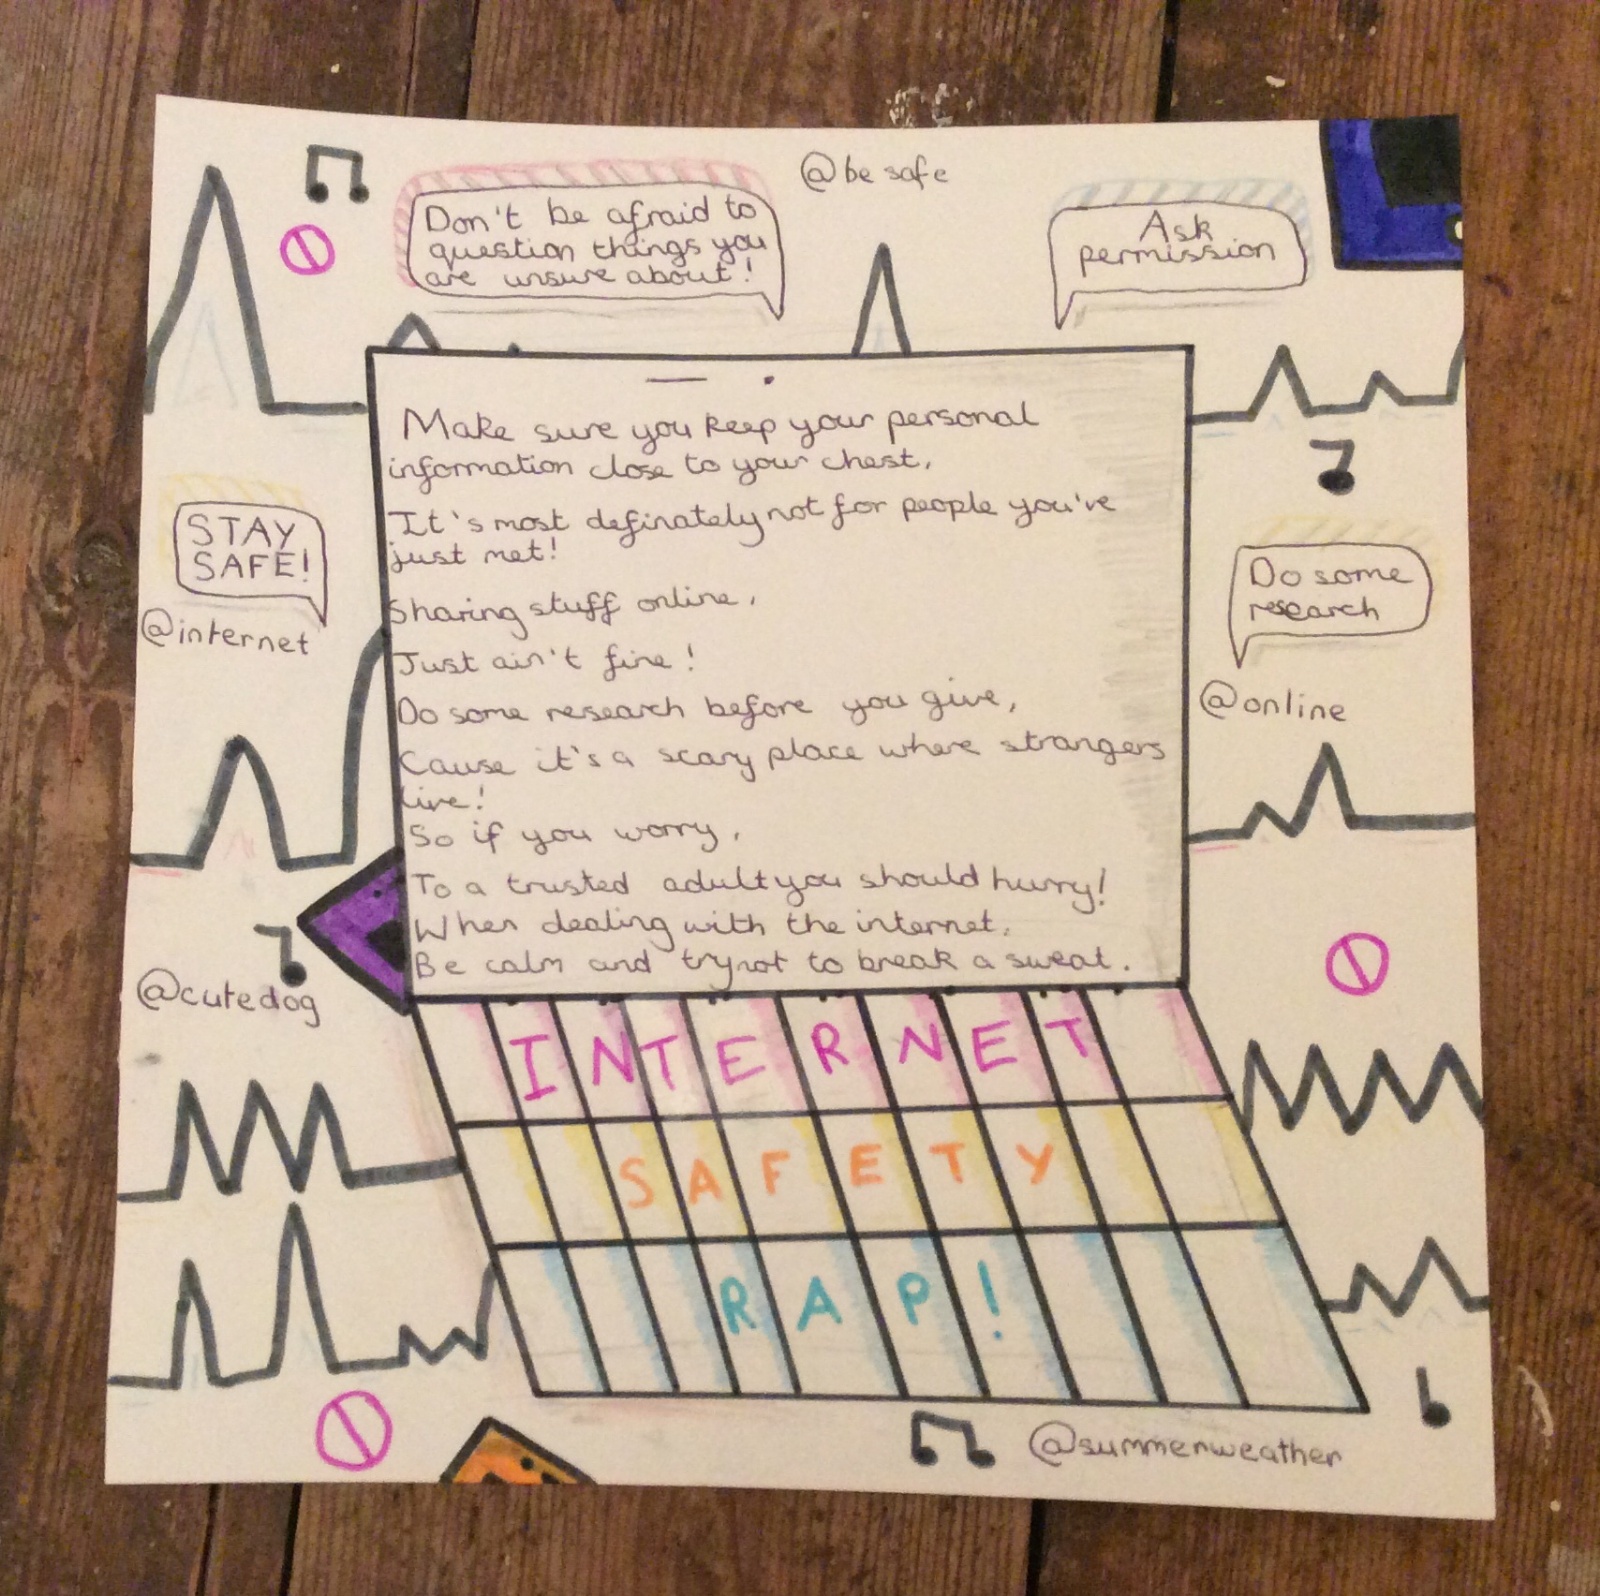 @be safe
Don't be afraid to
question things you
are unsure about!
Ask
permission
Make sure you keep your personal
information close to your chest,
It's most definately not for people you've
just met!
STAY
SAFE!
@internet
Do some
research
@online
Sharing stuff online,
Just ain't fine!
Do some research before you give,
Cause it's a scary place where strangers
live!
So if you worry,
To a trusted adult you should hurry!
When dealing with the internet,
Be calm and try not to break a sweat.
@cutedog
INTERNET
SAFETY
RAP!
@summerweather